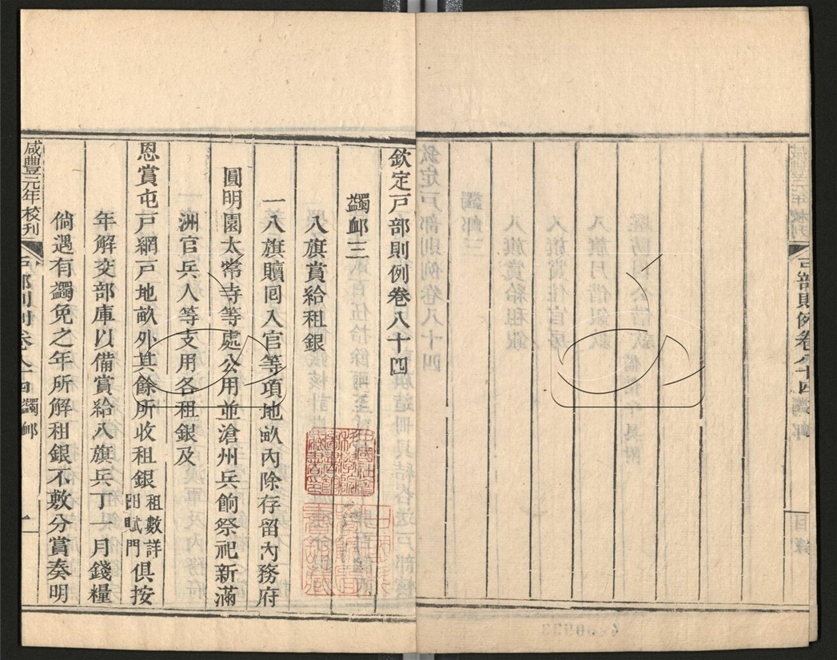 欽定戶部則例卷八十四
蠲卹三
八旗賞給租銀
一八旗贖囘入官等項地畝內除存留內務府
圓明園太常寺等處公用並滄州兵餉祭祀新滿
洲官兵人等支用各租銀及
恩賞屯戶網戶地畝外其餘所收租銀租數詳田賦門俱按
年解交部庫以備賞給八旗兵丁一月錢糧
倘遇有蠲免之年所解租銀不敷分賞奏明
咸豐元年校刊
戶部則例卷八十四 蠲卹 一